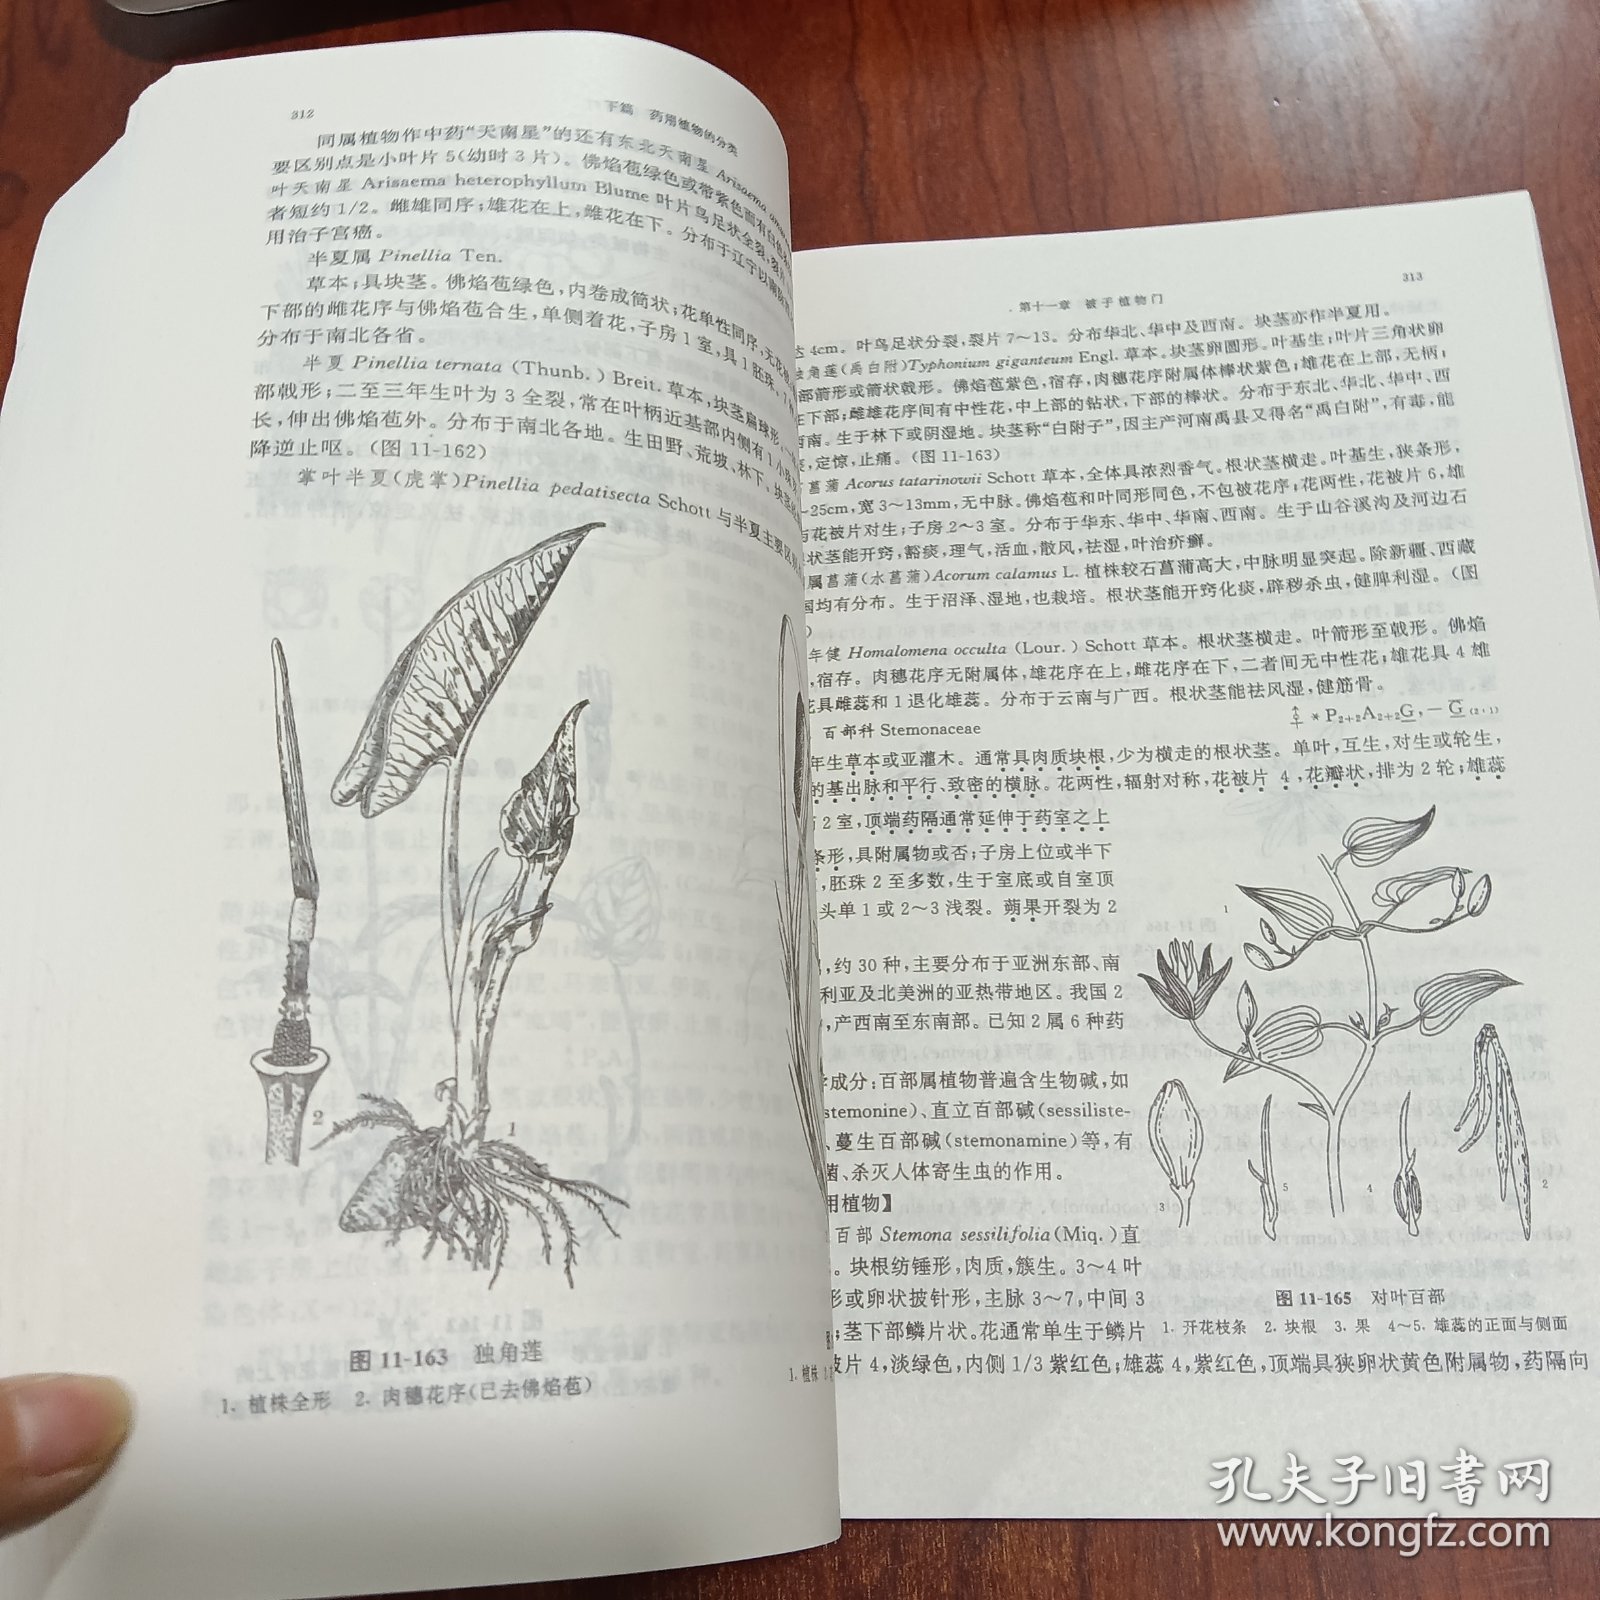 312
下篇 药用植物的分类
同属植物作中药“天南星”的还有东北天南星 Arisaema
要区别点是小叶片 5(幼时 3 片)。佛焰苞绿色或带紫色而有白色
叶天南星 Arisaema heterophyllum Blume 叶片鸟足状全裂,裂片
者短约 1/2。雌雄同序;雄花在上,雌花在下。分布于辽宁以南
用治子宫癌。
半夏属 Pinellia Ten.
草本;具块茎。佛焰苞绿色,内卷成筒状;花单性同序,无花被
下部的雌花序与佛焰苞合生,单侧着花,子房 1 室,具 1 胚珠。
分布于南北各省。
半夏 Pinellia ternata (Thunb.) Breit. 草本,块茎扁球形,一
部戟形;二至三年生叶为 3 全裂,常在叶柄近基部内侧有 1 小
长,伸出佛焰苞外。分布于南北各地。生田野、荒坡、林下。块茎
降逆止呕。(图 11-162)
掌叶半夏(虎掌)Pinellia pedatisecta Schott 与半夏主要区
2
1
图 11-163 独角莲
1. 植株全形 2. 肉穗花序(已去佛焰苞)
1. 植株
第十一章 被子植物门
313
达 4cm。叶鸟足状分裂,裂片 7～13。分布华北、华中及西南。块茎亦作半夏用。
角莲(禹白附)Typhonium giganteum Engl. 草本。块茎卵圆形。叶基生;叶片三角状卵
部箭形或箭状戟形。佛焰苞紫色,宿存,肉穗花序附属体棒状紫色;雄花在上部,无柄;
在下部;雌雄花序间有中性花,中上部的钻状,下部的棒状。分布于东北、华北、华中、西
西南。生于林下或阴湿地。块茎称“白附子”,因主产河南禹县又得名“禹白附”,有毒,能
,定惊,止痛。(图 11-163)
菖蒲 Acorus tatarinowii Schott 草本,全体具浓烈香气。根状茎横走。叶基生,狭条形,
～25cm,宽 3～13mm,无中脉。佛焰苞和叶同形同色,不包被花序;花两性,花被片 6,雄
与花被片对生;子房 2～3 室。分布于华东、华中、华南、西南。生于山谷溪沟及河边石
状茎能开窍,豁痰,理气,活血,散风,祛湿,叶治疥癣。
属菖蒲(水菖蒲)Acorum calamus L. 植株较石菖蒲高大,中脉明显突起。除新疆、西藏
国均有分布。生于沼泽、湿地,也栽培。根状茎能开窍化痰,辟秽杀虫,健脾利湿。(图
)
年健 Homalomena occulta (Lour.) Schott 草本。根状茎横走。叶箭形至戟形。佛焰
,宿存。肉穗花序无附属体,雄花序在上,雌花序在下,二者间无中性花;雄花具 4 雄
花具雌蕊和 1 退化雄蕊。分布于云南与广西。根状茎能祛风湿,健筋骨。
百部科 Stemonaceae
* P2+2A2+2G,-G(2:1)
年生草本或亚灌木。通常具肉质块根,少为横走的根状茎。单叶,互生,对生或轮生,
的基出脉和平行、致密的横脉。花两性,辐射对称,花被片 4,花瓣状,排为 2 轮;雄蕊
2 室,顶端药隔通常延伸于药室之上
条形,具附属物或否;子房上位或半下
,胚珠 2 至多数,生于室底或自室顶
头单 1 或 2～3 浅裂。蒴果开裂为 2
,约 30 种,主要分布于亚洲东部、南
利亚及北美洲的亚热带地区。我国 2
,产西南至东南部。已知 2 属 6 种药
成分:百部属植物普遍含生物碱,如
stemonine)、直立百部碱(sessiliste-
、蔓生百部碱(stemonamine)等,有
菌、杀灭人体寄生虫的作用。
用植物】
百部 Stemona sessilifolia(Miq.)直
。块根纺锤形,肉质,簇生。3～4 叶
形或卵状披针形,主脉 3～7,中间 3
;茎下部鳞片状。花通常单生于鳞片
被片 4,淡绿色,内侧 1/3 紫红色;雄蕊 4,紫红色,顶端具狭卵状黄色附属物,药隔向
1
3
5
4
2
图 11-165 对叶百部
1. 开花枝条 2. 块根 3. 果 4～5. 雄蕊的正面与侧面
孔夫子旧书网
www.kongfz.com